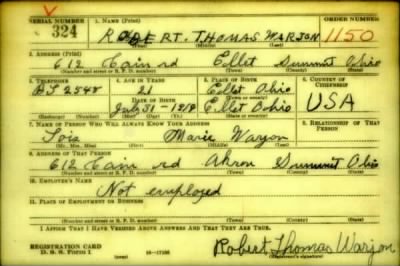 SERIAL NUMBER 1. NAME (Print) ORDER NUMBER
324 ROBERT. THOMAS WARJON 1150
(First) (Middle) (Last)
2. ADDRESS (Print)
612 Cain rd Ellet Summit Ohio
(Number and street or R. F. D. number) (Town) (County) (State)
3. TELEPHONE 4. AGE IN YEARS 5. PLACE OF BIRTH 6. COUNTRY OF CITIZENSHIP
2548 21 Ellet Ohio
(Town or county)
DATE OF BIRTH USA
July 31-1919 Ellet Ohio
(Exchange) (Number) (Mo.) (Day) (Yr.) (State or country)
7. NAME OF PERSON WHO WILL ALWAYS KNOW YOUR ADDRESS 8. RELATIONSHIP OF THAT PERSON
Lois Marie Warjon
(Mr., Mrs., Miss) (First) (Middle) (Last)
9. ADDRESS OF THAT PERSON
612 Cain rd Akron Summit Ohio
(Number and street or R. F. D. number) (Town) (County) (State)
10. EMPLOYER'S NAME
Not employed
11. PLACE OF EMPLOYMENT OR BUSINESS
(Number and street or R. F. D. number) (Town) (County) (State)
I AFFIRM THAT I HAVE VERIFIED ABOVE ANSWERS AND THAT THEY ARE TRUE.
REGISTRATION CARD
D. S. S. Form 1 Robert Thomas Warjon
(Registrant's signature)